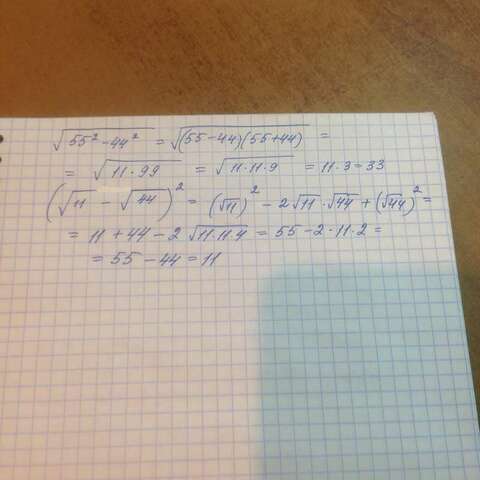 √(55² - 44²) = √((55-44)(55+44)) =
= √(11·99) = √(11·11·9) = 11·3 = 33
(√11 - √44)² = (√11)² - 2√11·√44 + (√44)² =
= 11 + 44 - 2√(11·11·4) = 55 - 2·11·2 =
= 55 - 44 = 11